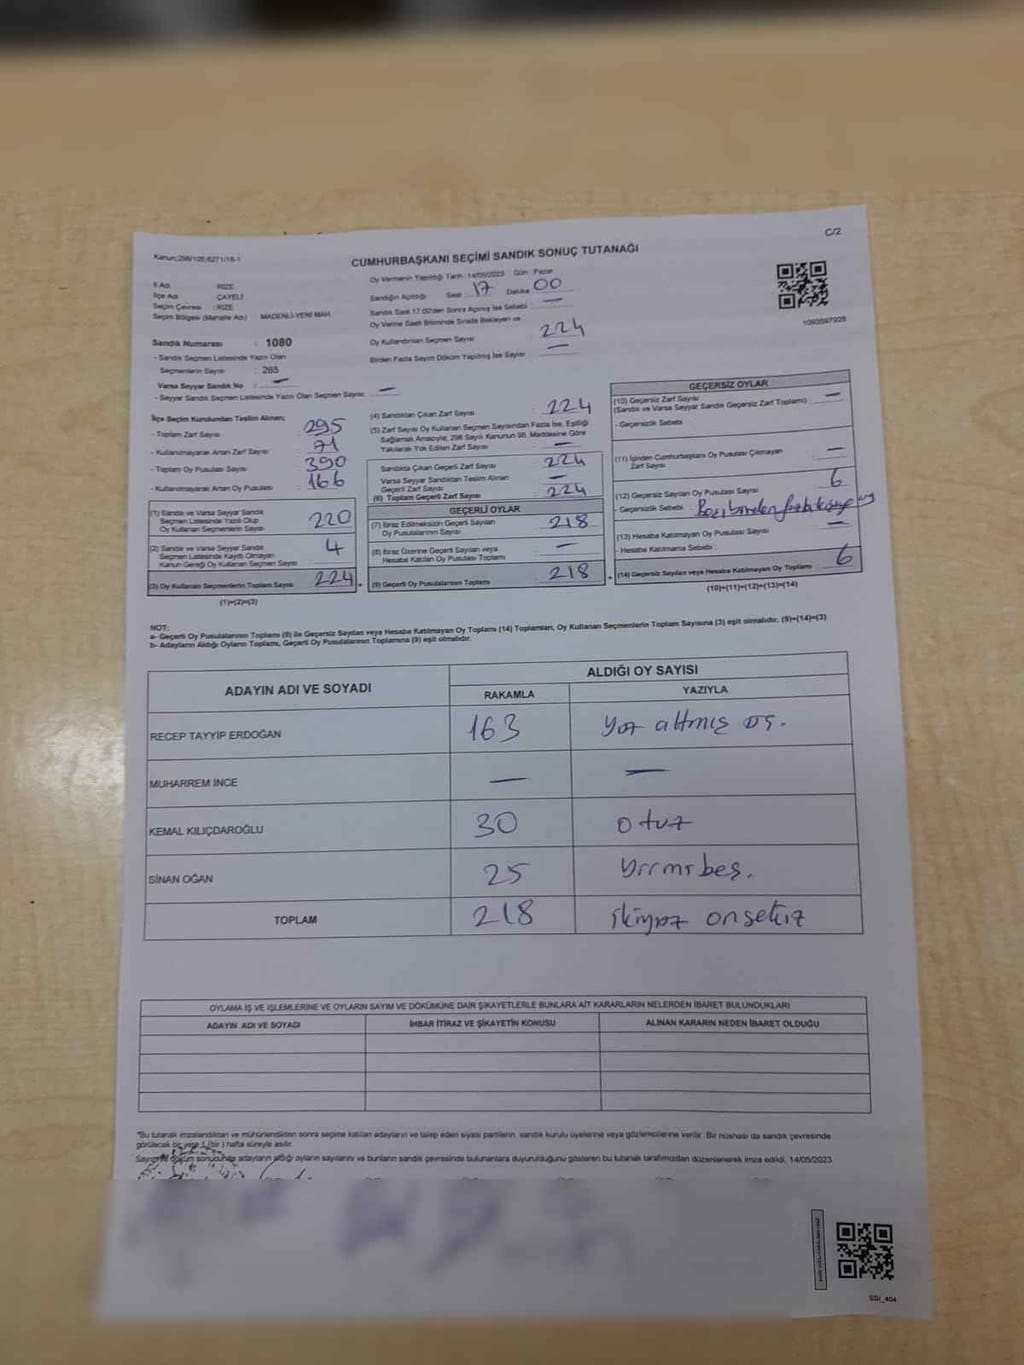 C/2
Kanun:298/109,6271/18-1
CUMHURBAŞKANI SEÇİMİ SANDIK SONUÇ TUTANAĞI
İl Adı : RİZE
İlçe Adı : ÇAYELİ
Seçim Çevresi : RİZE
Seçim Bölgesi (Mahalle Adı) : MADENLİ-YENİ MAH
Sandık Numarası : 1080
- Sandık Seçmen Listesinde Yazılı Olan
Seçmenlerin Sayısı : 265
Varsa Seyyar Sandık No : —
- Seyyar Sandık Seçmen Listesinde Yazılı Olan Seçmen Sayısı : —
Oy Vermenin Yapıldığı Tarih : 14/05/2023 Gün : Pazar
Sandığın Açıldığı Saat : 17 Dakika : 00
Sandık Saat 17:00'den Sonra Açılmış İse Sebebi : —
Oy Verme Saati Bitiminde Sırada Bekleyen ve
Oy Kullandırılan Seçmen Sayısı : 224
Birden Fazla Sayım Döküm Yapılmış İse Sayısı : —
1093597928
İlçe Seçim Kurulundan Teslim Alınan;
- Toplam Zarf Sayısı : 295
- Kullanılmayarak Artan Zarf Sayısı : 71
- Toplam Oy Pusulası Sayısı : 390
- Kullanılmayarak Artan Oy Pusulası : 166
(1) Sandık ve Varsa Seyyar Sandık
Seçmen Listesinde Yazılı Olup
Oy Kullanan Seçmenlerin Sayısı : 220
(2) Sandık ve Varsa Seyyar Sandık
Seçmen Listesinde Kayıtlı Olmayan
Kanun Gereği Oy Kullanan Seçmen Sayısı : 4
(3) Oy Kullanan Seçmenlerin Toplam Sayısı : 224
(1)+(2)=(3)
(4) Sandıktan Çıkan Zarf Sayısı : 224
(5) Zarf Sayısı Oy Kullanan Seçmen Sayısından Fazla İse, Eşitliği
Sağlamak Amacıyla; 298 Sayılı Kanunun 98. Maddesine Göre
Yakılarak Yok Edilen Zarf Sayısı : —
Sandıkta Çıkan Geçerli Zarf Sayısı : 224
Varsa Seyyar Sandıktan Teslim Alınan
Geçerli Zarf Sayısı : —
(6) Toplam Geçerli Zarf Sayısı : 224
GEÇERLİ OYLAR
(7) İtiraz Edilmeksizin Geçerli Sayılan
Oy Pusulalarının Sayısı : 218
(8) İtiraz Üzerine Geçerli Sayılan veya
Hesaba Katılan Oy Pusulası Toplamı : —
(9) Geçerli Oy Pusulalarının Toplamı : 218
GEÇERSİZ OYLAR
(10) Geçersiz Zarf Sayısı : —
(Sandık ve Varsa Seyyar Sandık Geçersiz Zarf Toplamı)
- Geçersizlik Sebebi :
(11) İçinden Cumhurbaşkanı Oy Pusulası Çıkmayan
Zarf Sayısı : —
(12) Geçersiz Sayılan Oy Pusulası Sayısı : 6
- Geçersizlik Sebebi :
(13) Hesaba Katılmayan Oy Pusulası Sayısı : —
- Hesaba Katılmama Sebebi :
(14) Geçersiz Sayılan veya Hesaba Katılmayan Oy Toplamı : 6
(10)+(11)+(12)+(13)=(14)
NOT:
a- Geçerli Oy Pusulalarının Toplamı (9) ile Geçersiz Sayılan veya Hesaba Katılmayan Oy Toplamı (14) Toplamları, Oy Kullanan Seçmenlerin Toplam Sayısına (3) eşit olmalıdır. (9)+(14)=(3)
b- Adayların Aldığı Oyların Toplamı, Geçerli Oy Pusulalarının Toplamına (9) eşit olmalıdır.
ADAYIN ADI VE SOYADI
ALDIĞI OY SAYISI
RAKAMLA YAZIYLA
RECEP TAYYİP ERDOĞAN 163 Yüz altmış üç.
MUHARREM İNCE — —
KEMAL KILIÇDAROĞLU 30 otuz
SİNAN OĞAN 25 Yirmi beş.
TOPLAM 218 ikiyüz onsekiz
OYLAMA İŞ VE İŞLEMLERİNE VE OYLARIN SAYIM VE DÖKÜMÜNE DAİR ŞİKAYETLERLE BUNLARA AİT KARARLARIN NELERDEN İBARET BULUNDUKLARI
ADAYIN ADI VE SOYADI İHBAR İTİRAZ VE ŞİKAYETİN KONUSU ALINAN KARARIN NEDEN İBARET OLDUĞU
*Bu tutanak imzalandıktan ve mühürlendikten sonra seçime katılan adayların ve talep eden siyasi partilerin sandık kurulu üyelerine veya gözlemcilerine verilir. Bir nüshası da sandık çevresinde
görülecek bir yere 1 (bir) hafta süreyle asılır.
Sayım ve döküm sonucunda adayların aldığı oyların sayılarını ve bunların sandık çevresinde bulunanlara duyurulduğunu gösteren bu tutanak tarafımızdan düzenlenerek imza edildi. 14/05/2023
SSI_404